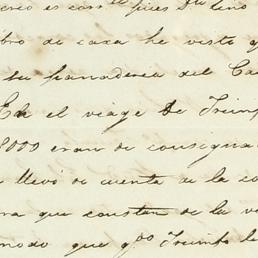 creo es con el pues Dn Lino
bro de caxa he visto y
su panaderea del Ca
En el viage de Triunf
8000 eran de consignac
llevó de cuenta de la co
ra que constan de la v
modo que qdo Triunfo le